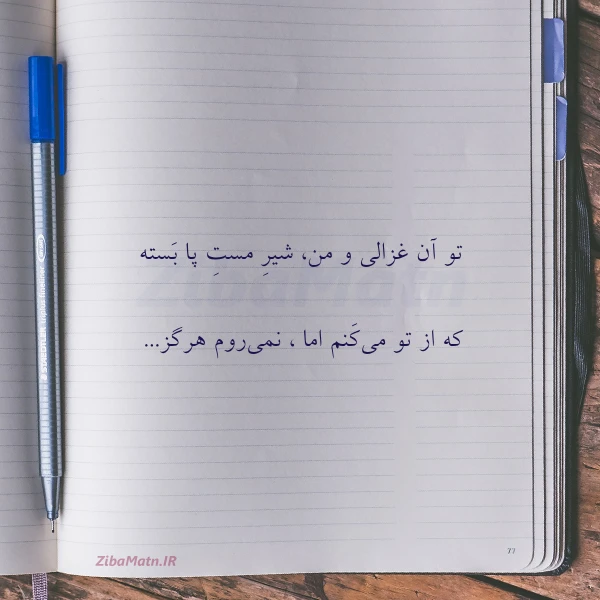 تو آن غزالی و من، شیرِ مستِ پا بَسته
که از تو می‌کَنم اما ، نمی‌روم هرگز...
ZibaMatn.IR
77